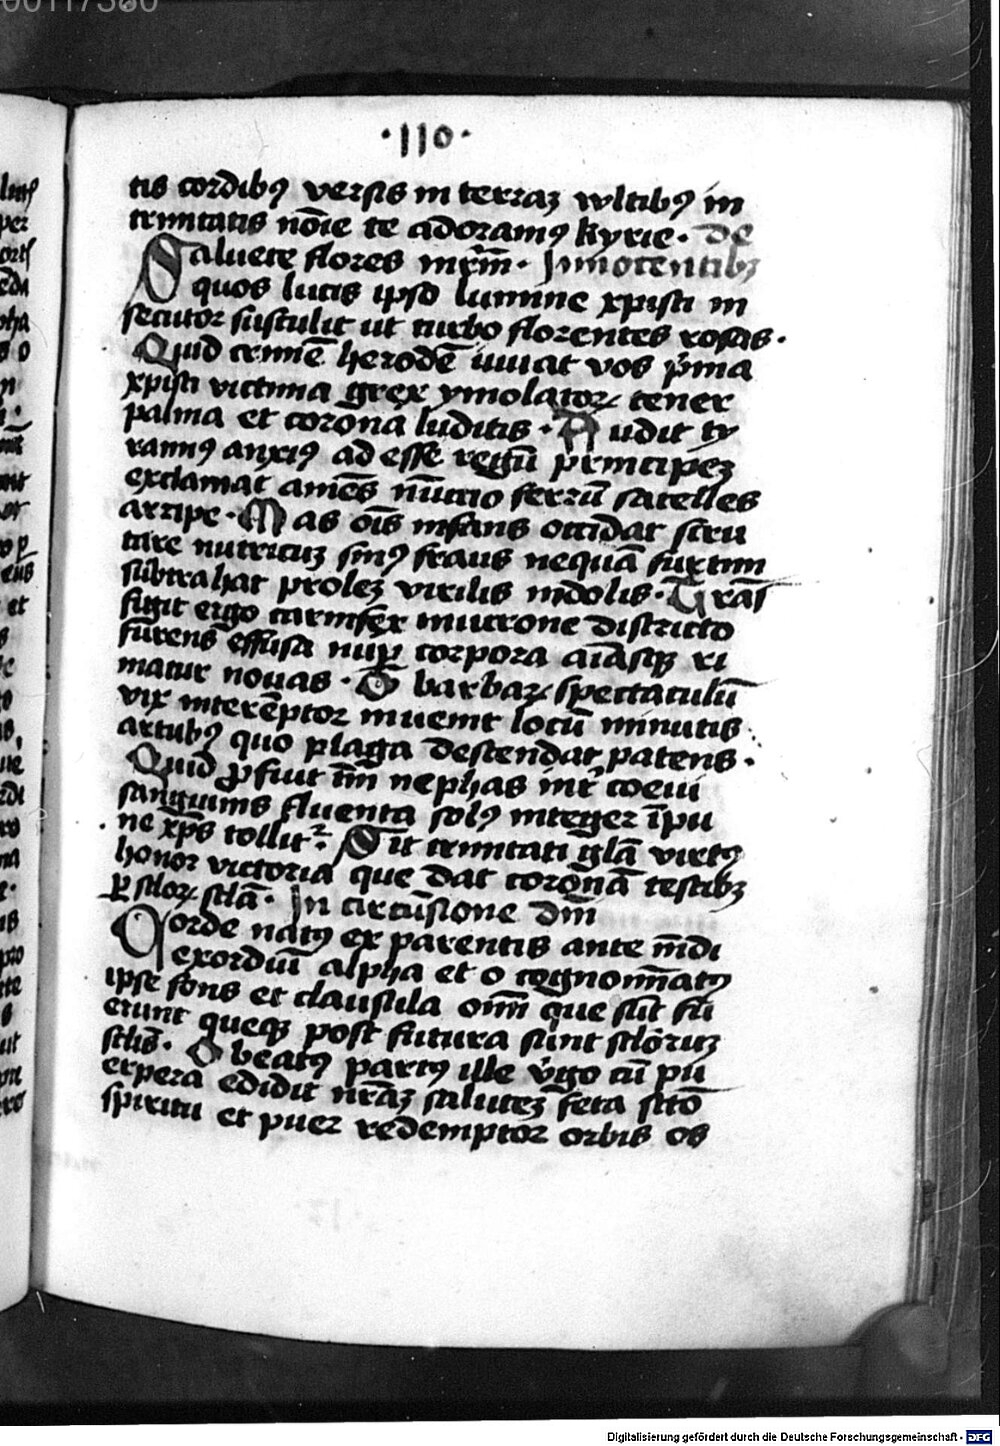 00117360
·110·
tis cordibꝰ versis in terraʒ wltibꝰ in
trinitatis nōie te adoramꝰ kyrie · De
Saluete flores mr̄m̄ · Innocentibꝫ
quos lucis ipso lumine xpisti in
secutor sustulit ut turbo florentes rosas ·
Quid crimē herodē iuuat vos p̄ma
xpisti victima grex ymolatoꝝ tener
palma et corona luditis · Audit ty
rannꝰ anxiꝰ adesse regū principeʒ
exclamat amēs nūctio ferrū satelles
arripe · Mas oīs infans occidat scru
tare nutricuʒ sinꝰ fraus nequā furtim
subtrahat proleʒ virilis indolis · Trās
figit ergo carnifex mucrone districto
furens effusa nuꝑ corpora aīasqꝫ ri
matur nouas · O barbaꝝ spectaculū
vix interēptor inuenit locū minutis
artubꝰ quo plaga descendat patens ·
Quid ꝓfiuit tm̄ nephas int̄ coeui
sanguinis fluenta solꝰ integer īpu
ne xp̄s tollit᷑ · Sit trinitati gl̄a virtꝰ
honor victoria que dat coronā testibꝫ
ꝑ scl̄oꝝ scl̄a · In circūsione dn̄i
Corde natꝰ ex parentis ante m̄di
exordiū alpha et o cognom̄natꝰ
ipse fons et clausula om̄ que sūt fu
erunt queqꝫ post futura sunt scl̄oruʒ
scl̄is · O beatꝰ partꝰ ille v̓go cū pu
erpera edidit nr̄aʒ saluteʒ feta sc̄tō
spiritu et puer redemptor orbis os
Digitalisierung gefördert durch die Deutsche Forschungsgemeinschaft - DFG